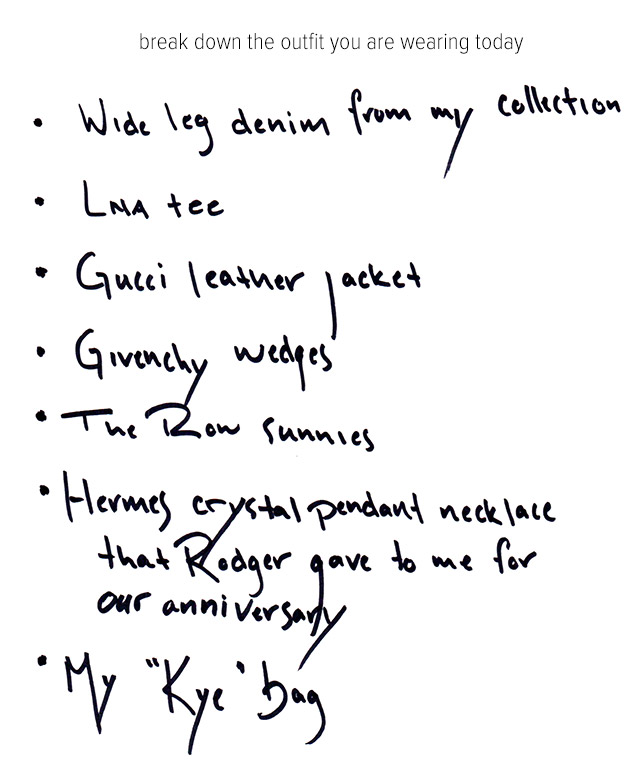 break down the outfit you are wearing today
• Wide leg denim from my collection
• LNA tee
• Gucci leather jacket
• Givenchy wedges
• The Row sunnies
• Hermes crystal pendant necklace
that Rodger gave to me for
our anniversary
• My "Kye" bag